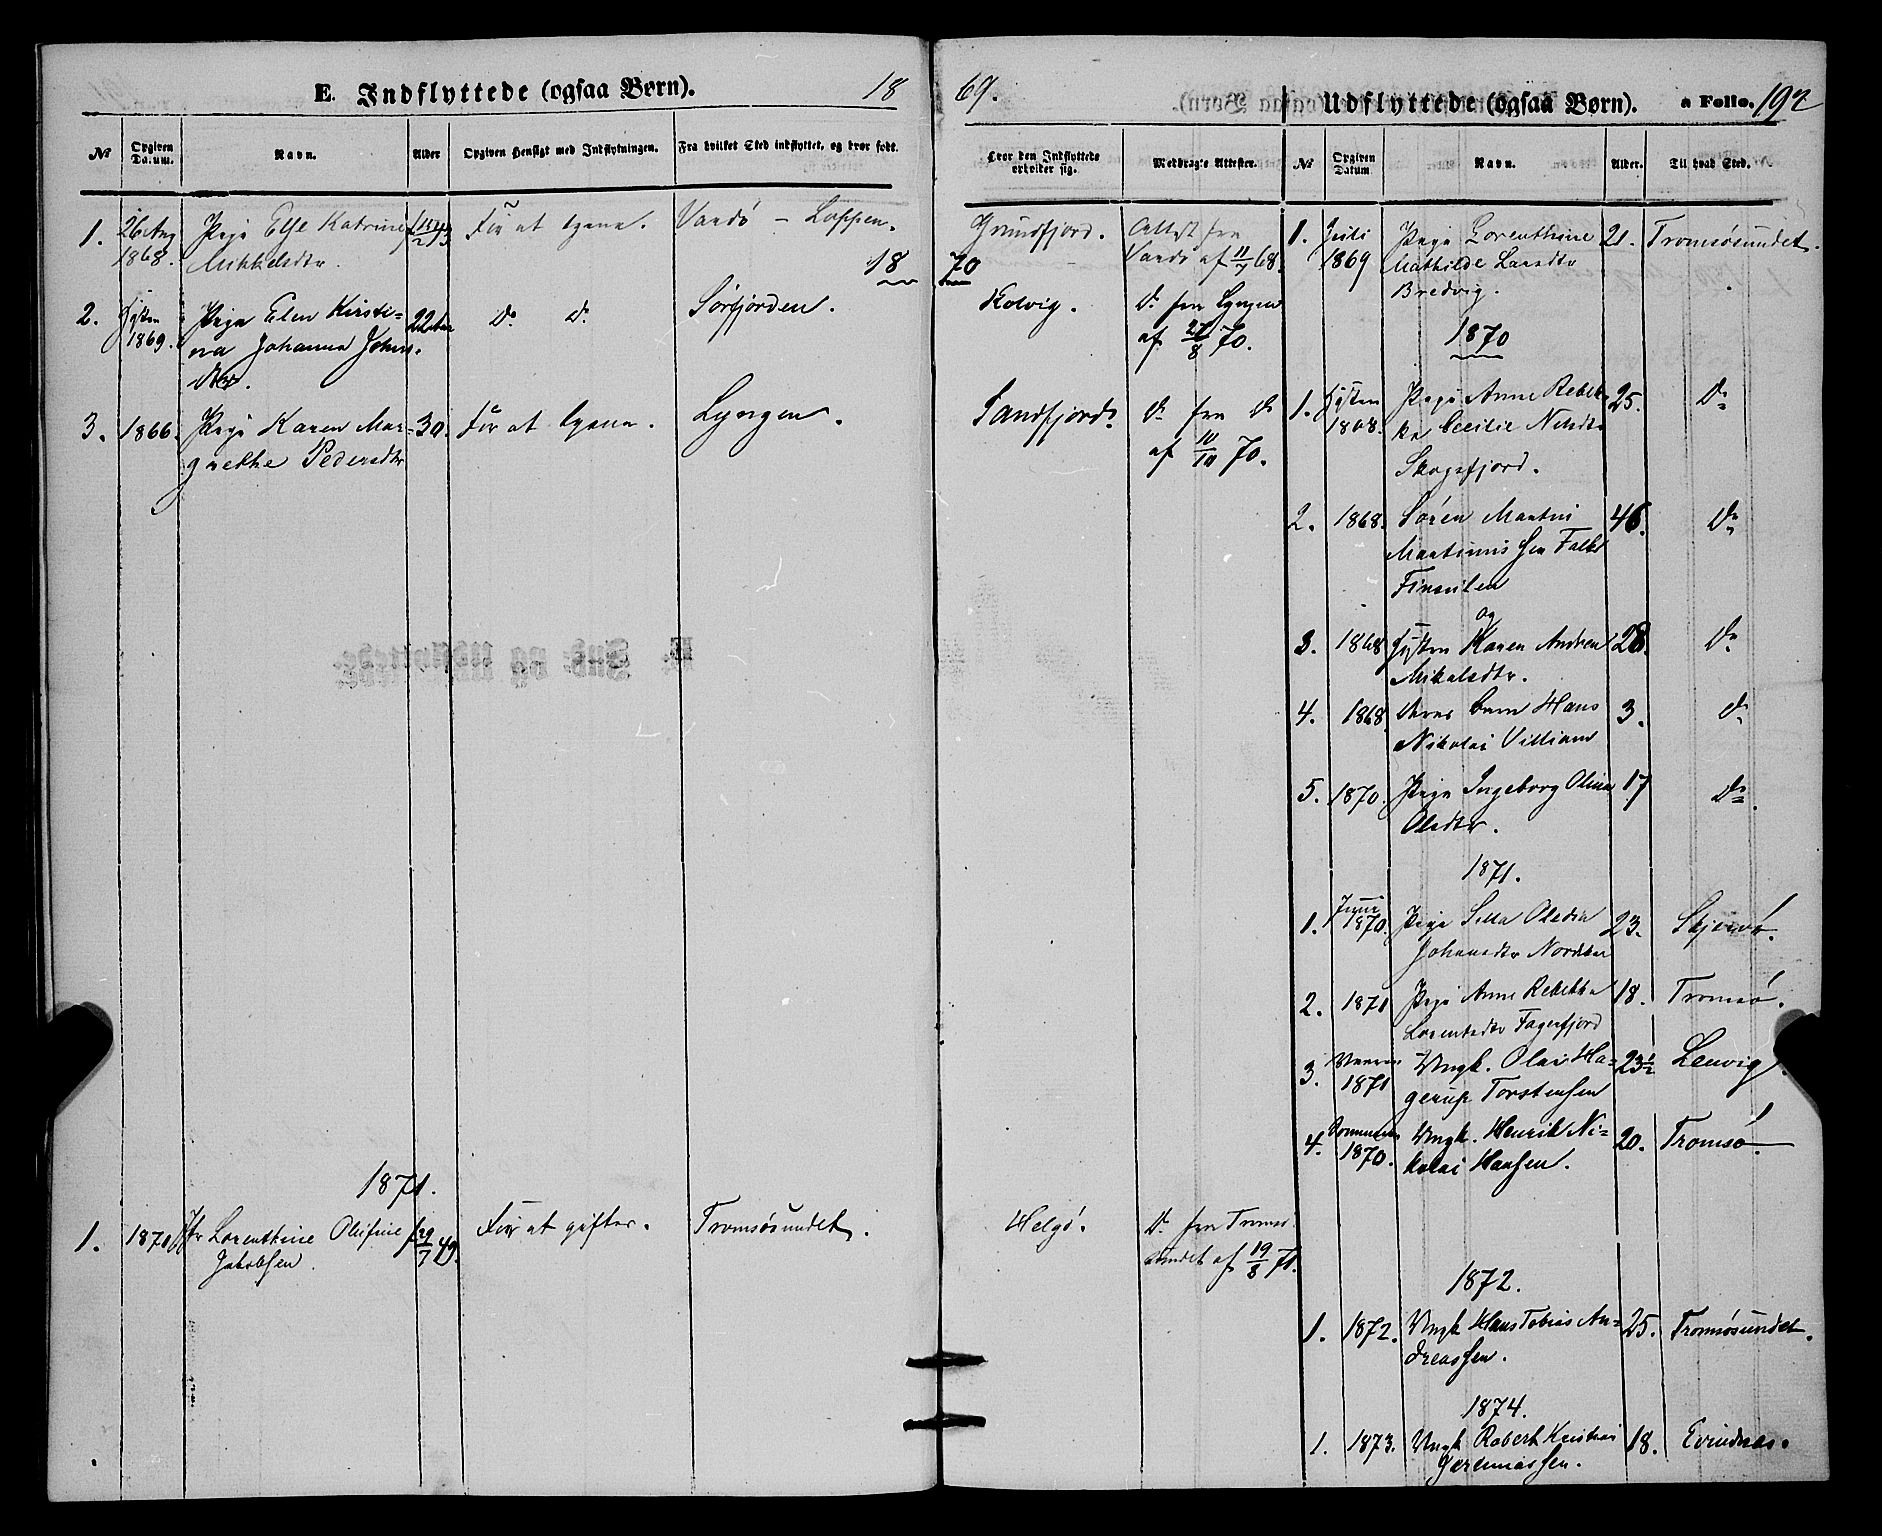 E. Indflyttede (ogsaa Børn). 18
No Opgiven Datum. Navn. Alder Opgiven Hensigt med Indflytningen. Fra hvilket Sted indflyttet, og hvor født.
1. 26 Aug 1868. Pige Else Katrine f 43 For at tjene. Vardø – Loppen.
Mikkelsdtr.
18
2. Høsten 1869. Pige Elen Kirsti- 22 Do Do Sørfjorden.
na Johanna Johns
dtr.
3. 1866. Pige Karen Mar- 30. For at tjene. Lyngen.
grethe Pedersdtr
1871.
1. 1870 Lorenthine Olufine f 29/7 49. For at gifte. Tromsøsundet.
Jakobsen.
69.
Hvor den Indflyttede erholder sig. Medbragte Attester.
Grundfjord. Attest fra
Vardø af 11/7 68.
70
Kolvig. Do fra Lyngen
af 21/8 70.
Sandfjord. Do fra Do
af 10/10 70.
Helgø. Do fra Tromsø
sundet af 19/8 71.
Udflyttede (ogsaa Børn). a Folio. 192
No Opgiven Datum Navn. Alder. Til hvad Sted.
1. Juli 1869 Pige Lorenthine 21. Tromsøsundet.
Mathilde Larsdtr
Bredvig.
1870
1. Høsten 1868. Pige Anne Rebek- 25. Do
ka Cecilie Nilsdtr
Skogsfjord.
2. 1868. Søren Martin 46. Do
Martinussen Falk
og
3. 1868 Hustru Karen Andrea 28. Do
Mikalsdtr.
4. 1868 deres barn Hans 3. Do
Nikolai Villiam
5. 1870. Pige Ingeborg Olina 17 Do
Olsdtr.
1871.
1. Juni 1870. Pige Silla Oledia 23. Skjervø.
Johansdtr
2. 1871 Pige Anne Rebekka 18. Tromsø.
Lorentsdtr Fagerfjord
3. Vaaren 1871 Ungk. Olai Ha- 23½ Lenvig.
gerup Torstensen
4. Sommeren 1870. Ungk. Henrik Ni- 20. Tromsø.
kolai Hansen.
1872.
1. 1872. Ungk Hans Tobias An- 25. Tromsøsundet.
dreassen.
1874.
1. 1873. Ungk Robert Kristian 18. Evindnæs.
Jeremiassen.